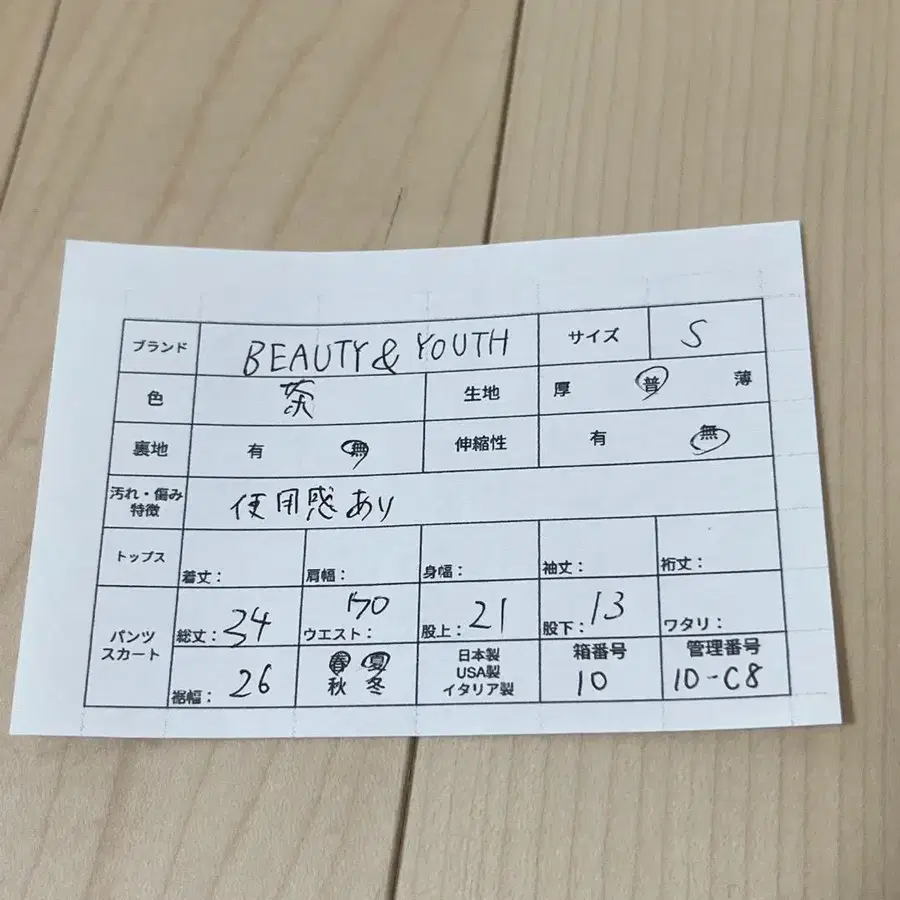 ブランド BEAUTY & YOUTH サイズ S
色 茶 生地 厚 普 薄
裏地 有 無 伸縮性 有 無
汚れ・傷み
特徴 使用感あり
トップス 着丈： 肩幅： 身幅： 袖丈： 裄丈：
パンツ
スカート
総丈：34 ウエスト：70 股上：21 股下：13 ワタリ：
裾幅：26
春 夏
秋 冬
日本製
USA製
イタリア製
箱番号
10
管理番号
10-C8